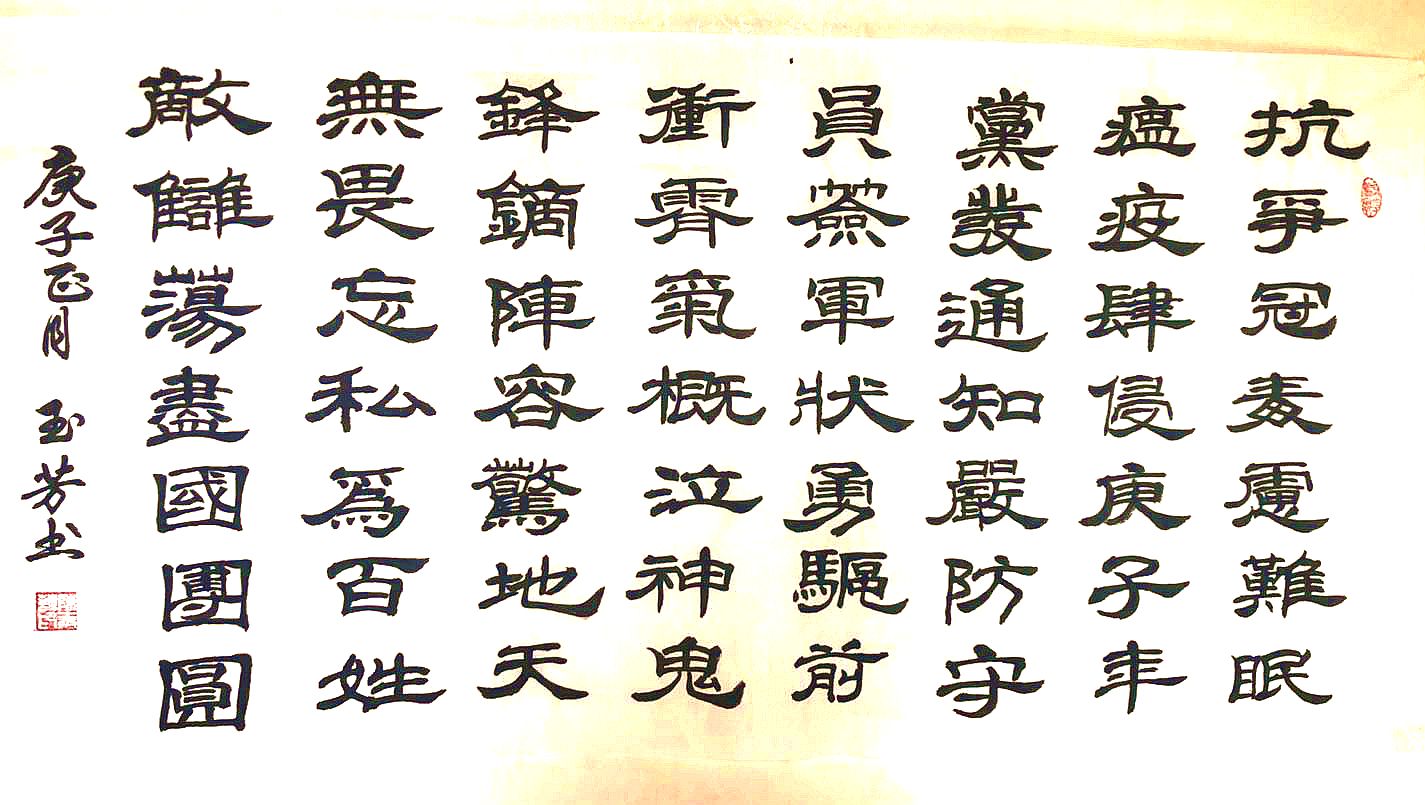 抗爭冠毒慮難眠
瘟疫肆侵庚子年
黨發通知嚴防守
員簽軍狀勇驅前
衝霄氣概泣神鬼
鋒鏑陣容驚地天
無畏忘私為百姓
敵讎蕩盡國團圓
庚子正月 玉芳书